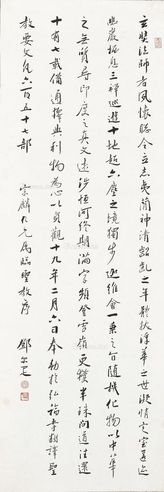 玄奘法師者夙懷聰令立志夷簡神清齠齔之年體拔浮華之世凝情定室匿迹
幽巖栖息三禪巡遊十地超六塵之境獨步迦維會一乘之旨隨機化物以中華
之無質尋印度之真文遠涉恒河終期滿字頻登雪嶺更獲半珠問道往還
十有七載備通釋典利物為心以貞觀十九年二月六日奉勅於弘福寺翻譯聖
教要文凡六百五十七部
屬臨聖教序